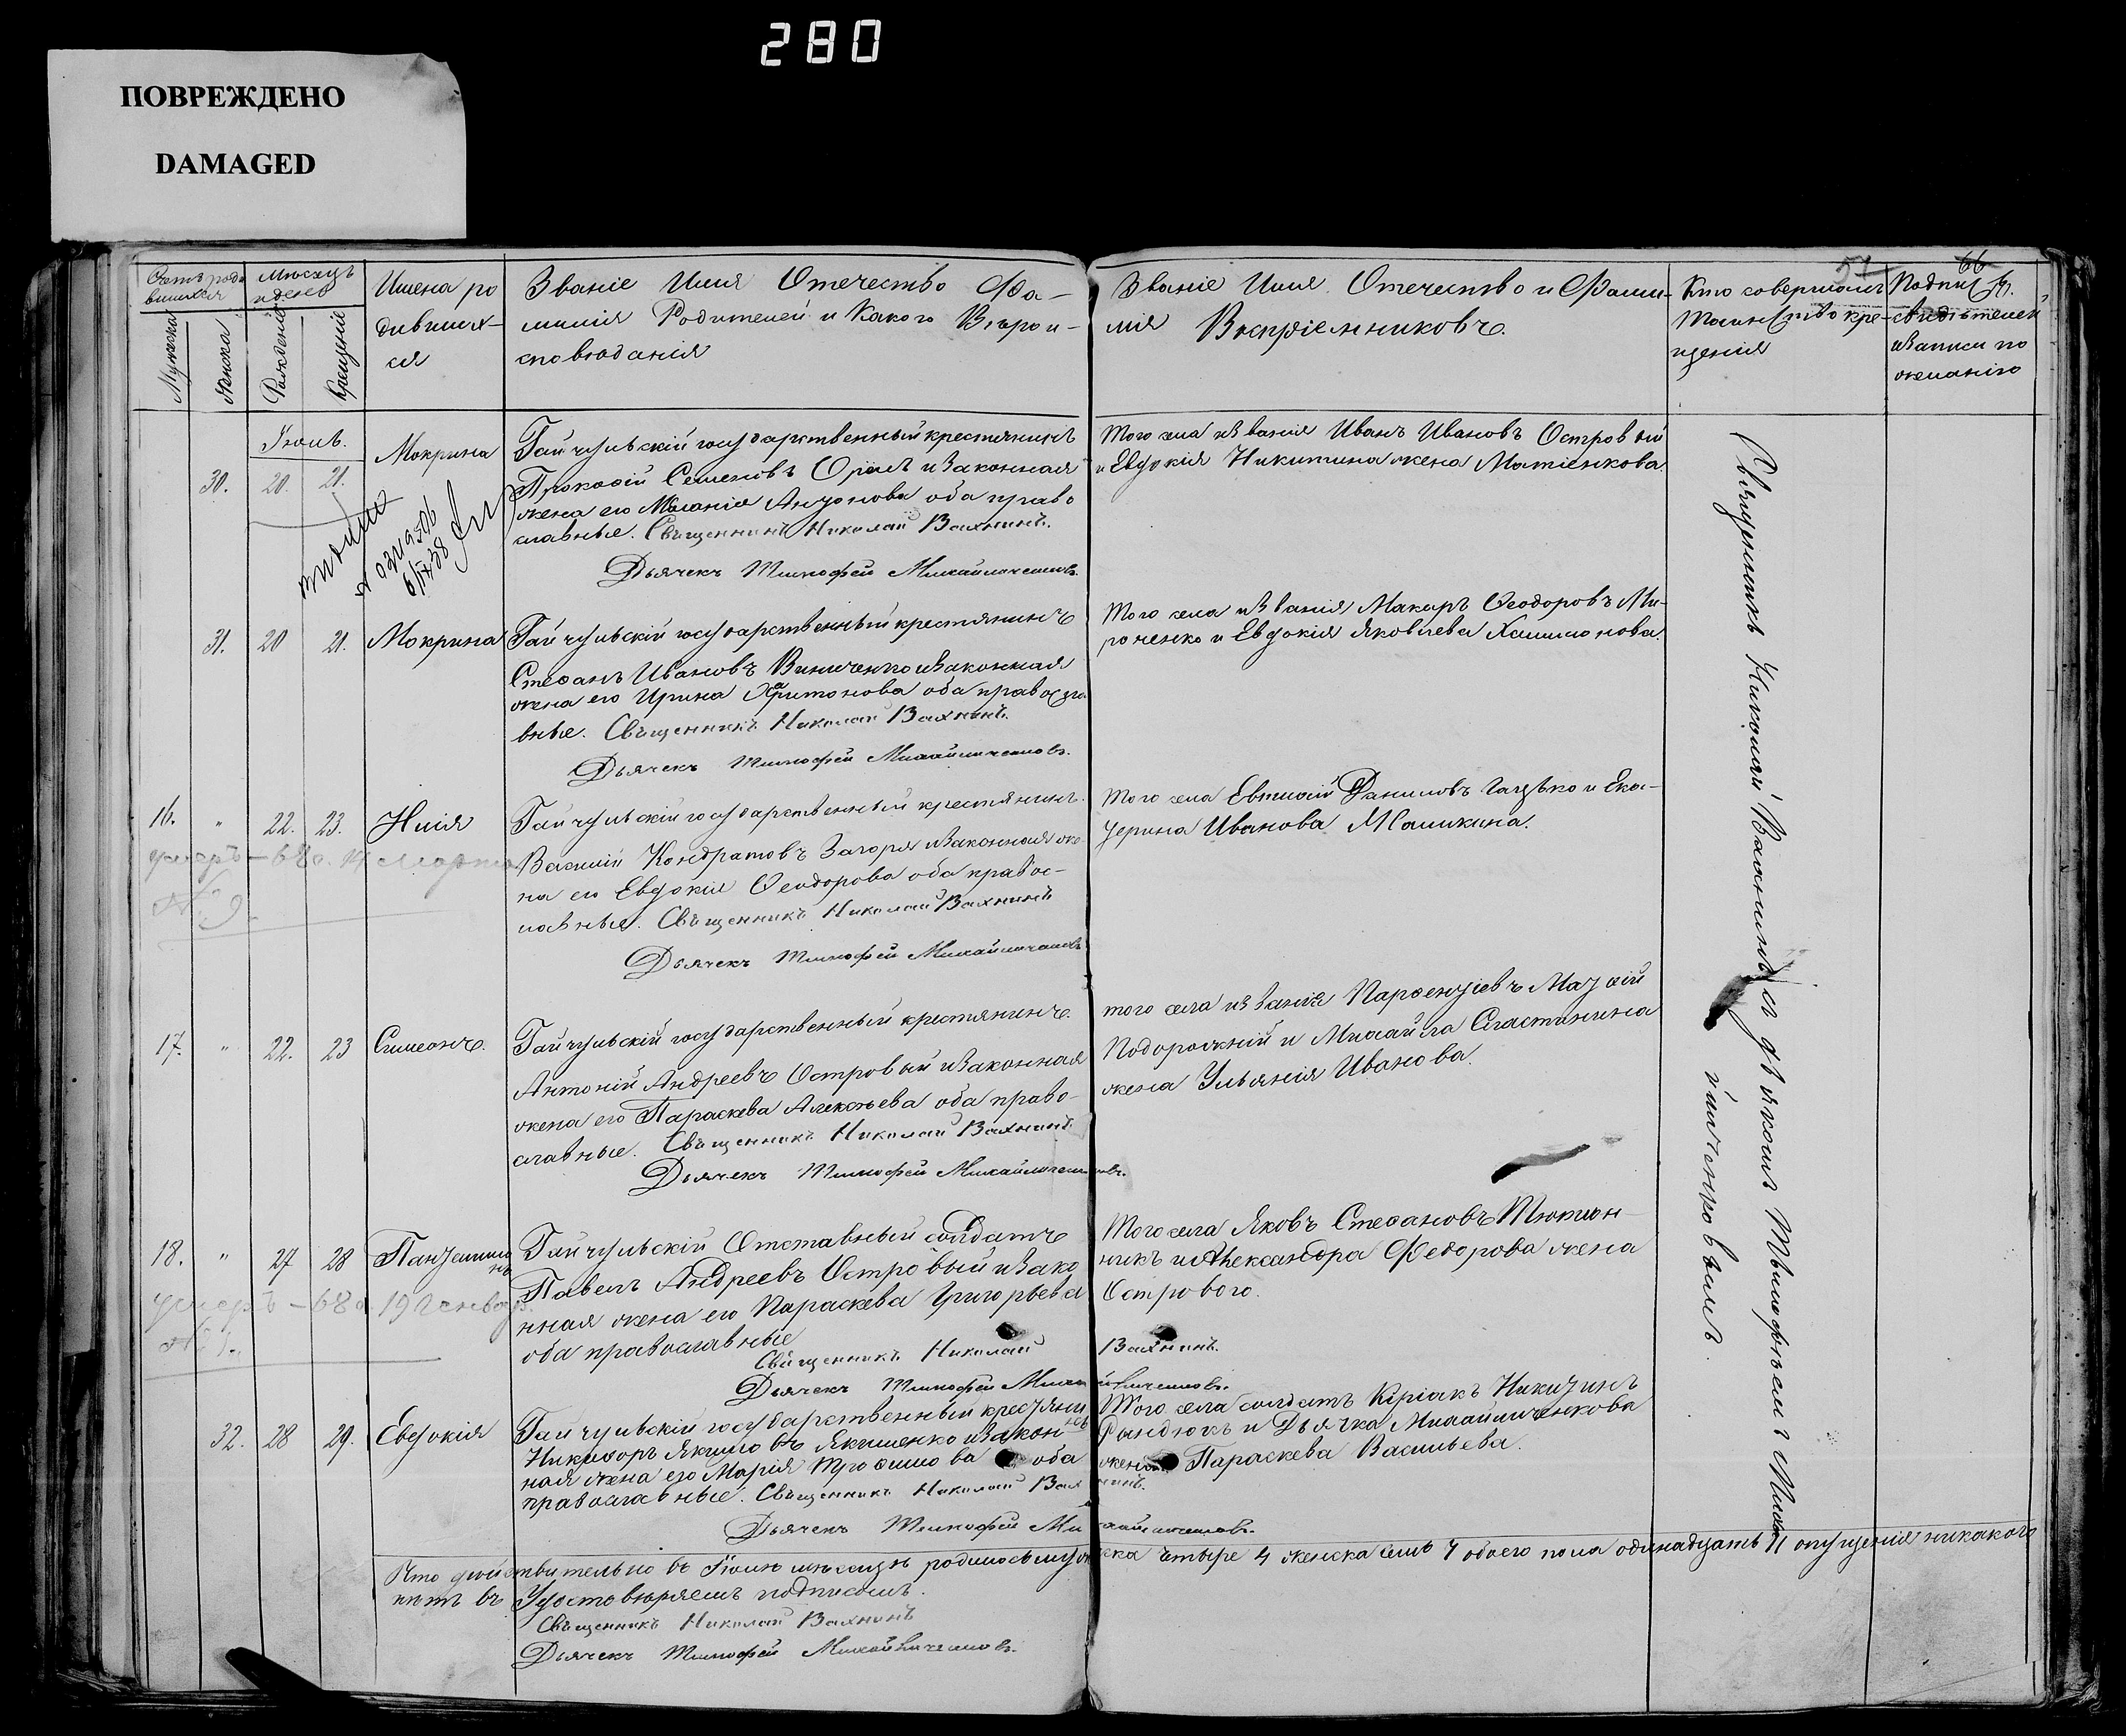 280
ПОВРЕЖДЕНО
DAMAGED
51 66
Счетъ родившихся
Мѣсяцъ и день
Мужеска
Женска
Рожденія
Крещенія
Имена ро
дивших-
ся
Званіе Имя Отечество Фа-
милія Родителей и Какого Вѣрои-
сповѣданія
Званіе Имя Отечество и Фами-
лія Воспріемниковъ.
Кто совершалъ
таинство кре-
щенія
Подпись
свидѣтелей
и записи по
желанію
Іюль.
30. 20. 21. Мокрина
Гайчульскій государственный крестянинъ
Прокофій Семеновъ Орелъ и законная
жена его Меланія Антонова оба право
славные. Священникъ Николай Вахнинъ.
Дьячекъ Тимофей Михайличенковъ.
Того села и званія Иванъ Ивановъ Островый
и Евдокія Никитина жена Матіенкова.
31. 20 21. Мокрина
Гайчульскій государственный крестянинъ
Стефанъ Ивановъ Виниченко и законная
жена его Ирина Харитонова оба правосла
вные. Священникъ Николай Вахнинъ.
Дьячекъ Тимофей Михайличенковъ.
Того села и званія Макаръ Феодоровъ Ми-
роненко и Евдокія Яковлева
16. " 22. 23. Илія
умеръ - 68 г. 14 марта
№ 9.
Гайчульскій государственный крестянинъ.
Василій Кондратовъ Загоря и законная же
на его Евдокія Феодорова оба правос-
лавные. Священникъ Николай Вахнинъ
Дьячекъ Тимофей Михайличенковъ
Того села Евтихій Даниловъ и Ека-
терина Иванова Машкина.
17. " 22. 23 Симеонъ.
Гайчульскій государственный крестянинъ.
Антоній Андреевъ Островый и законная
жена его Параскева Алексѣева оба право-
славные. Священникъ Николай Вахнинъ
Дьячекъ Тимофей Михайличенковъ.
того села и званія Парфентіевъ
Подорожній и Михайла Сластинина
жена Ульянія Иванова.
18. " 27 28 Пантелимо
нъ
умеръ - 68 г. 19 Генвар.
№ 1.
Гайчульскій Отставный солдатъ
Павелъ Андреевъ Островый и зако
нная жена его Параскева Григорьева
оба православные
Священникъ Николай Вахнинъ.
Дьячекъ Тимофей Михайличенковъ.
Того села Яковъ Стефановъ Тютюн-
никъ и Александра Федорова жена
Острового.
32. 28 29. Евдокія
Гайчульскій государственный крестяни
нъ
Никифоръ Якимовъ Якименко и закон
ная жена его Марія Трофимова оба
православные. Священникъ Николай Вахнинъ.
Дьячекъ Тимофей Михайличенковъ.
Того села солдатъ Киріакъ Никитинъ
Рындюкъ и Дьячка Михайличенкова
жена Параскева Васильева.
Священникъ Николай Вахнинъ съ дьячкомъ Тимофѣемъ Михай
личенковымъ.
Что дѣйствительно въ Іюлѣ мѣсяцѣ родилось мужеска четыре 4 женска семь 7 обоего пола одинадцать 11 опущенія никакого
нѣтъ въ Удостовѣряемъ подписомъ.
Священникъ Николай Вахнинъ
Дьячекъ Тимофей Михайличенковъ.